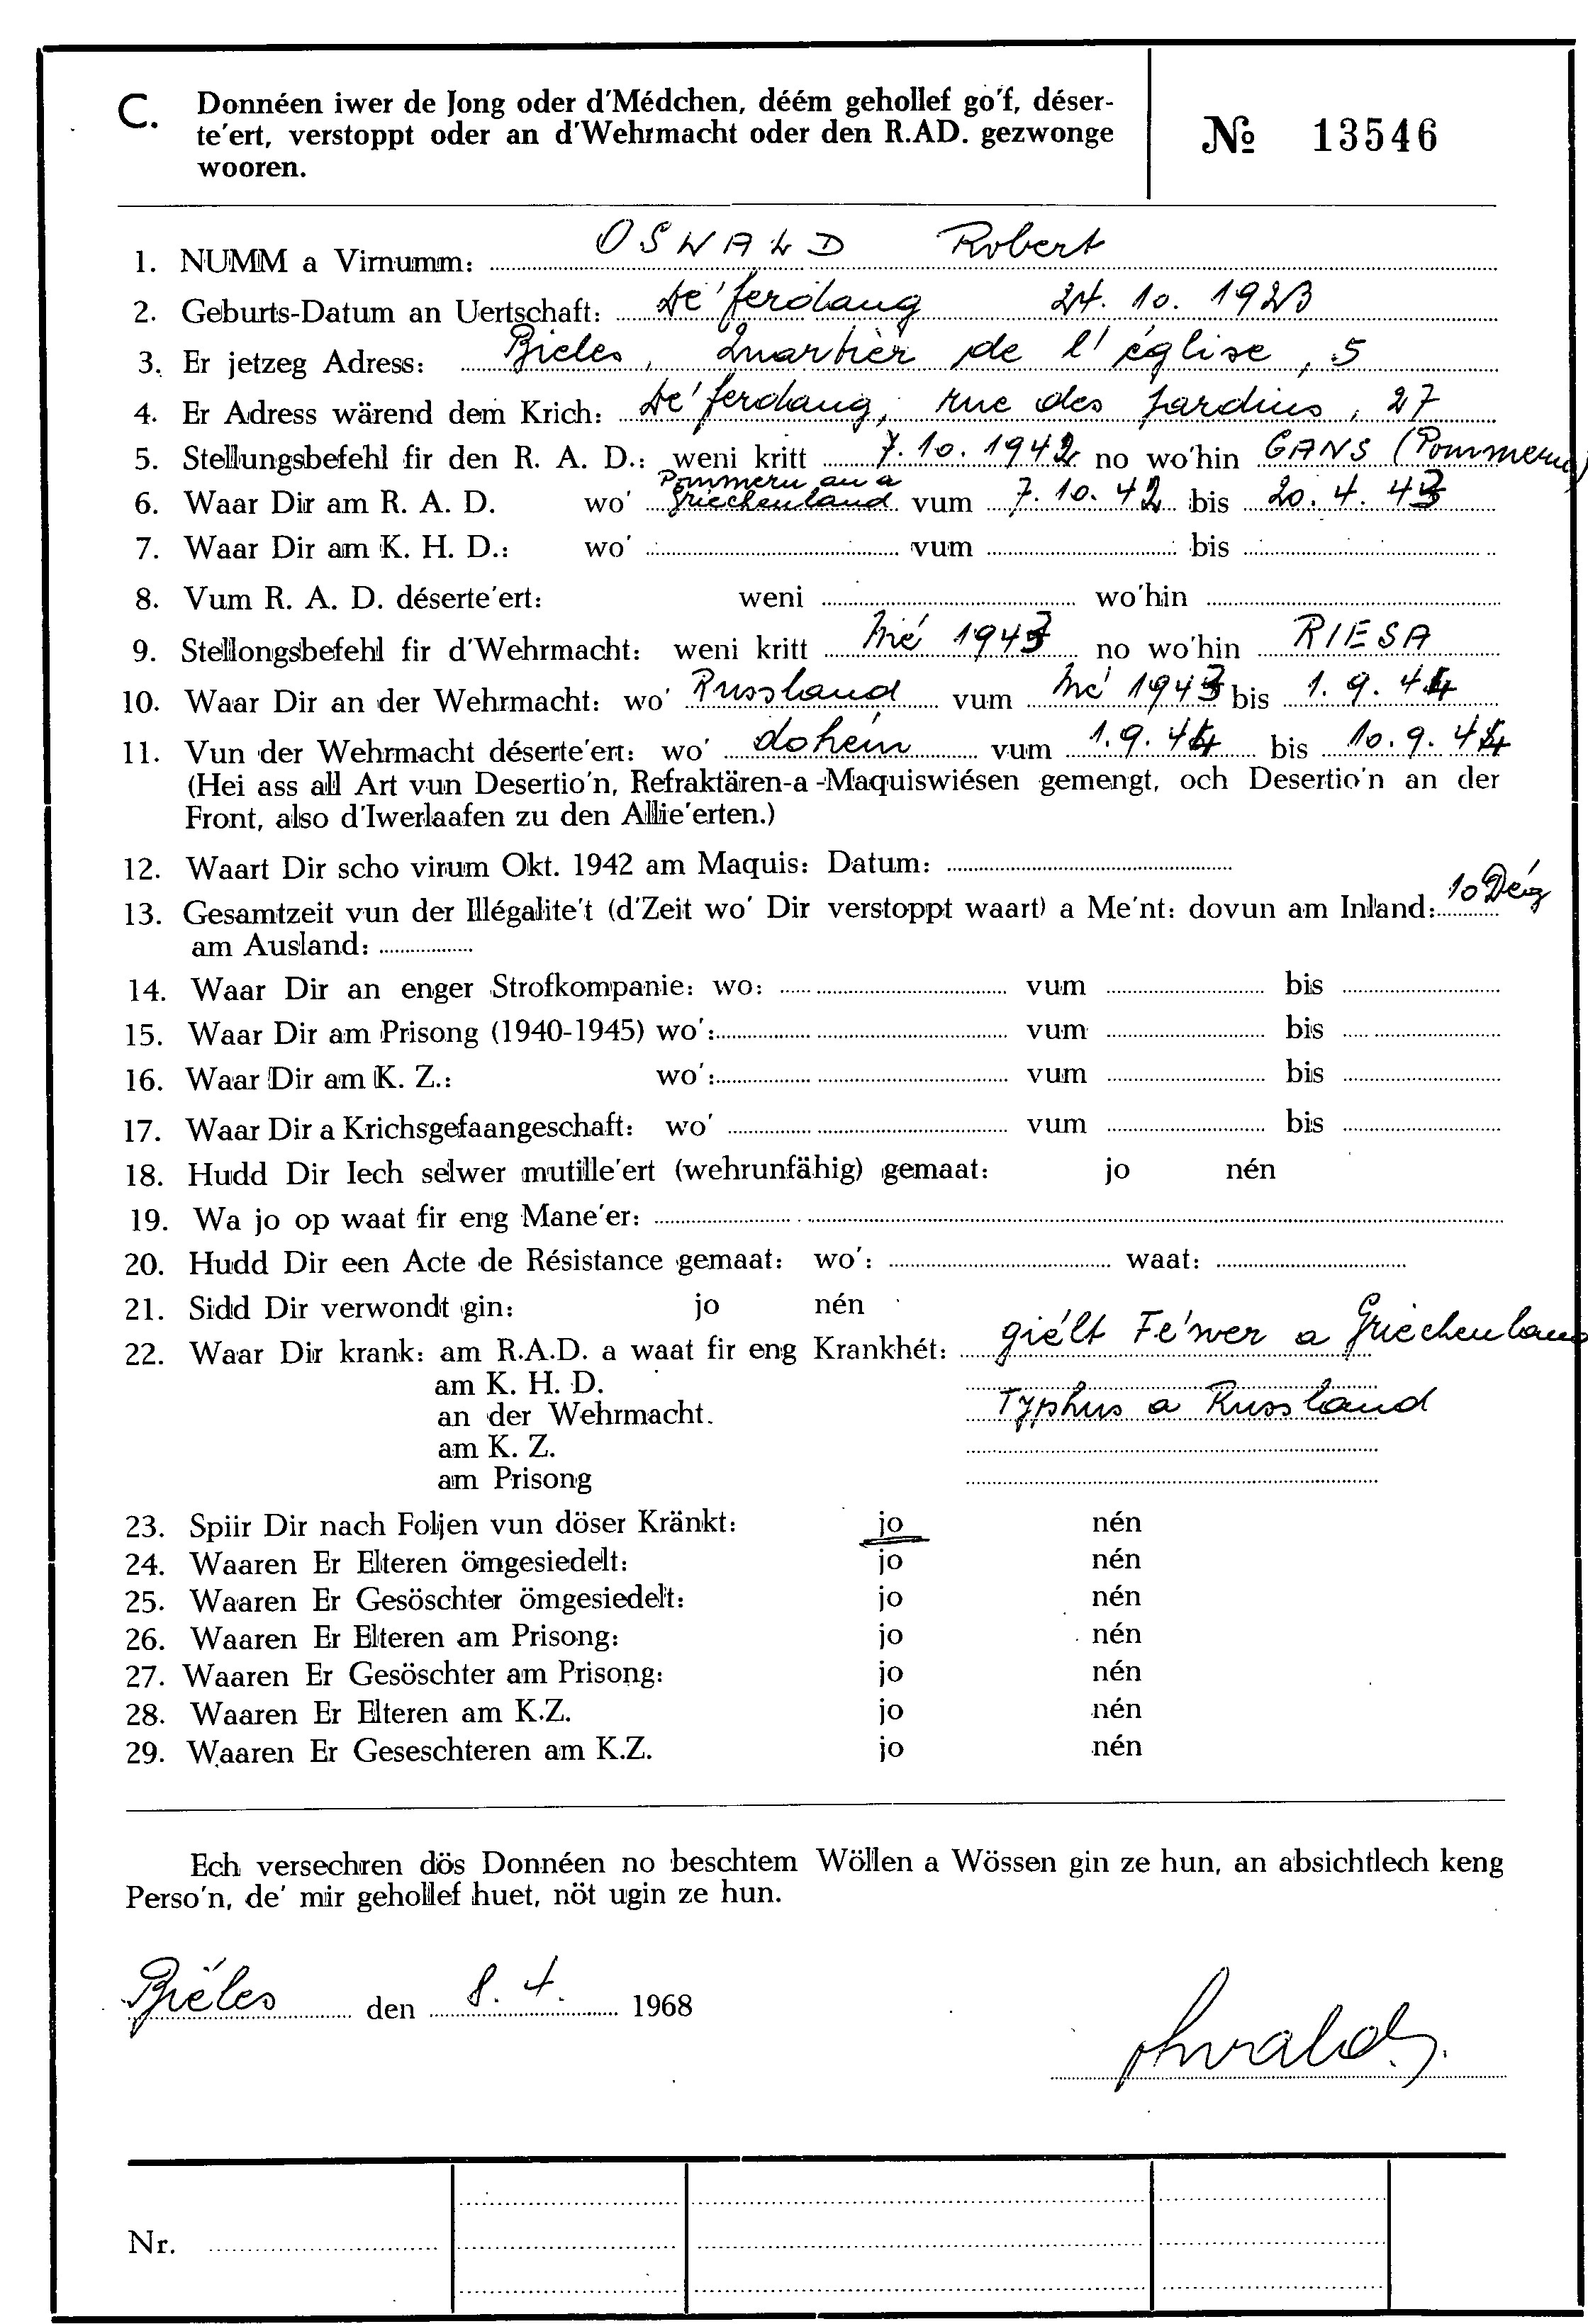 C. Donnéen iwer de Jong oder d'Médchen, déém gehollef go'f, déser-
te'ert, verstoppt oder an d'Wehrmacht oder den R.AD. gezwonge
wooren.
№ 13546
1. NUMM a Virnumm: OSWALD Robert
2. Geburts-Datum an Uertschaft: Dé'ferdang 24. 10. 1923
3. Er jetzeg Adress: Bieles, Quartier de l'église, 5
4. Er Adress wärend dem Krich: Dé'ferdang, rue des Jardins, 27
5. Stellungsbefehl fir den R. A. D.: weni kritt 7. 10. 1942 no wo'hin GANS (Pommern)
6. Waar Dir am R. A. D. wo' Pommern an a Griechenland vum 7. 10. 42 bis 20. 4. 43
7. Waar Dir am K. H. D.: wo' vum bis
8. Vum R. A. D. déserte'ert: weni wo'hin
9. Stellongsbefehl fir d'Wehrmacht: weni kritt Mé 1943 no wo'hin RIESA
10. Waar Dir an der Wehrmacht: wo' Russland vum Mé 1943 bis 1. 9. 44
11. Vun der Wehrmacht déserte'ert: wo' dohém vum 1. 9. 44 bis 10. 9. 44
(Hei ass all Art vun Desertio'n, Refraktären-a -Maquiswiésen gemengt, och Desertio'n an der
Front, also d'Iwerlaafen zu den Allie'erten.)
12. Waart Dir scho virum Okt. 1942 am Maquis: Datum:
13. Gesamtzeit vun der Illégalite't (d'Zeit wo' Dir verstoppt waart) a Me'nt: dovun am Inland: 10 Dég
am Ausland:
14. Waar Dir an enger Strofkompanie: wo: vum bis
15. Waar Dir am Prisong (1940-1945) wo': vum bis
16. Waar Dir am K. Z.: wo': vum bis
17. Waar Dir a Krichsgefaangeschaft: wo' vum bis
18. Hudd Dir Iech selwer mutille'ert (wehrunfähig) gemaat: jo nén
19. Wa jo op waat fir eng Mane'er:
20. Hudd Dir een Acte de Résistance gemaat: wo': waat:
21. Sidd Dir verwondt gin: jo nén
22. Waar Dir krank: am R.A.D. a waat fir eng Krankhét: giélt Fé'wer a Griechenland
am K. H. D.
an der Wehrmacht. Typhus a Russland
am K. Z.
am Prisong
23. Spiir Dir nach Foljen vun döser Kränkt: jo nén
24. Waaren Er Elteren ömgesiedelt: jo nén
25. Waaren Er Gesöschter ömgesiedelt: jo nén
26. Waaren Er Elteren am Prisong: jo nén
27. Waaren Er Gesöschter am Prisong: jo nén
28. Waaren Er Elteren am K.Z. jo nén
29. Waaren Er Geseschteren am K.Z. jo nén
Ech versechren dös Donnéen no beschtem Wöllen a Wössen gin ze hun, an absichtlech keng
Perso'n, de' mir gehollef huet, nöt ugin ze hun.
Biéles den 8. 4. 1968
Oswald
Nr.